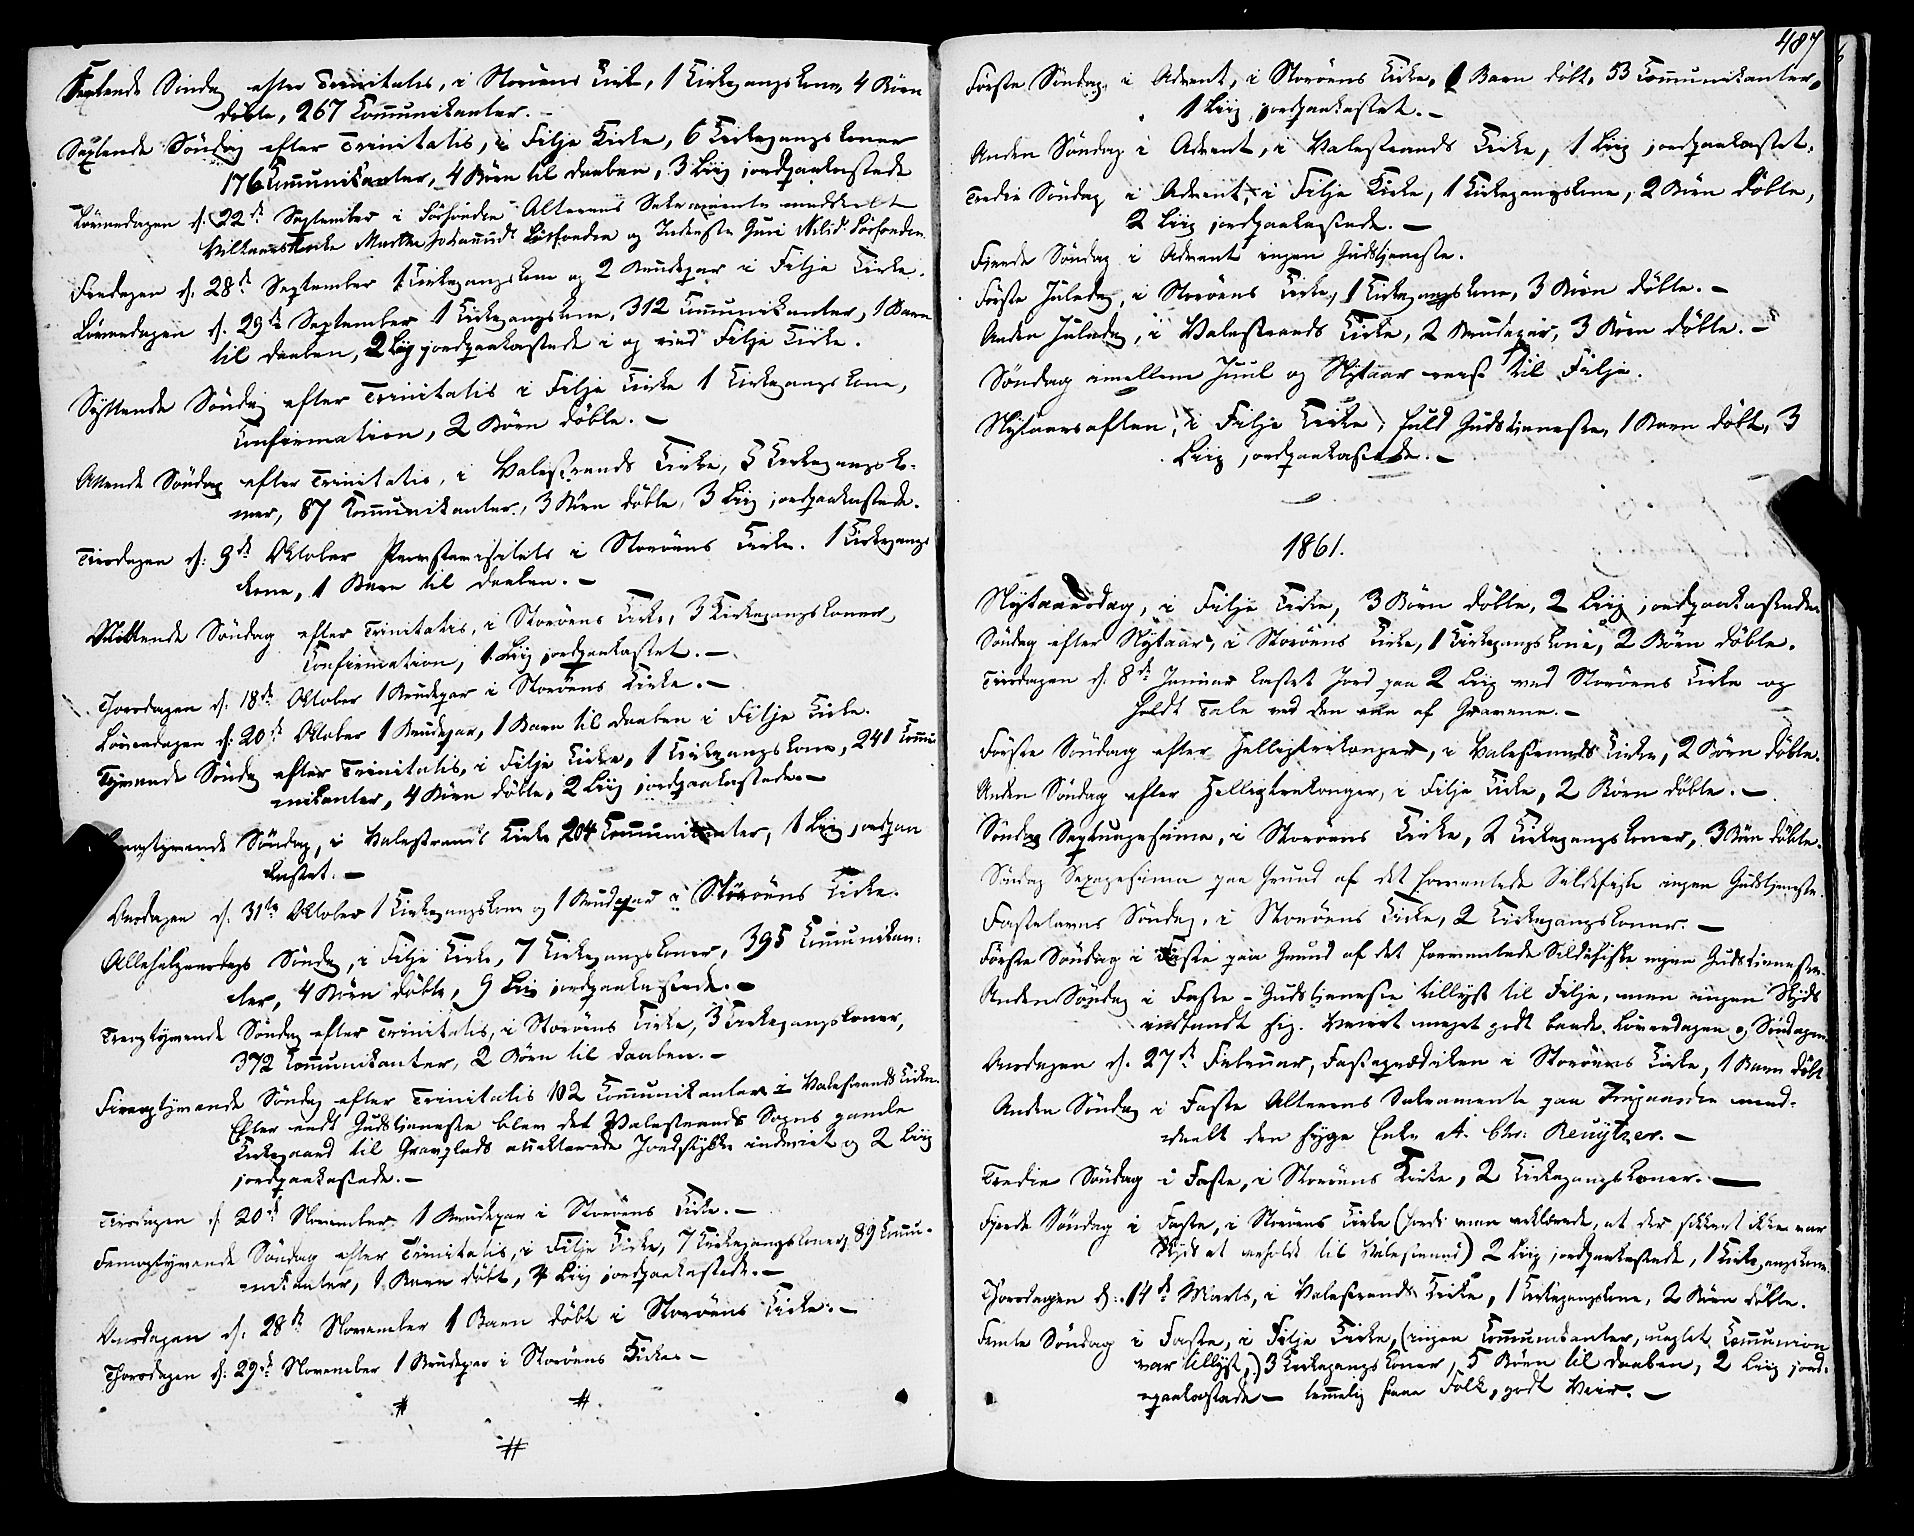 Femtende Søndag efter Trinitatis, i Storøens Kirke, 1 Kirkegangskone, 4 Børn
døbte, 267 Communikanter.
Sextende Søndag efter Trinitatis, i Filje Kirke, 6 Kirkegangskoner
176 Communikanter, 4 Børn til Daaben, 3 Liig jordpaakastede
Løverdagen d. 22de September i Alterens Sakramente meddeelt
og
Fredagen d. 28de September 1 Kirkegangskone og 2 Brudepar i Filje Kirke.
Løverdagen d. 29de September 1 Kirkegangskone, 312 Communikanter, 1 Barn
til Daaben, 2 Liig jordpaakastede i og ved Filje Kirke.
Syttende Søndag efter Trinitatis i Filje Kirke 1 Kirkegangskone,
Confirmation, 2 Børn døbte. —
Attende Søndag efter Trinitatis, i Valestrands Kirke, 5 Kirkegangsko-
ner, 87 Communikanter, 3 Børn døbte, 3 Liig jordpaakastede.
Tirsdagen d. 9de Oktober i Storøens Kirke. 1 Kirkegangs
kone, 1 Barn til Daaben. —
Nittende Søndag efter Trinitatis, i Storøens Kirke, 3 Kirkegangskoner,
Confirmation, 1 Liig jordpaakastet. —
Thorsdagen d. 18de Oktober 1 Brudepar i Storøens Kirke. —
Løverdagen d. 20de Oktober 1 Brudepar, 1 Barn til Daaben i Filje Kirke.
Tyvende Søndag efter Trinitatis, i Filje Kirke, 1 Kirkegangskone, 241 Commu-
nikanter, 4 Børn døbte, 2 Liig jordpaakastede. —
Søndag, i Valestrands Kirke 204 Communikanter, 1 Liig jordpaa
kastet. —
Onsdagen d. 31te Oktober 1 Kirkegangskone og 1 Brudepar i Storøens Kirke.
Allehelgensdags Søndag, i Filje Kirke, 7 Kirkegangskoner, 395 Communikan-
ter, 4 Børn døbte, 9 Liig jordpaakastede. —
Treogtyvende Søndag efter Trinitatis, i Storøens Kirke, 3 Kirkegangskoner,
372 Communikanter, 2 Børn til Daaben. —
Fireogtyvende Søndag efter Trinitatis 102 Communikanter i Valestrands Kirke.
Efter endt Gudstjeneste blev det Valestrands Sogns gamle
Kirkegaard til Gravplads Jordstykke indviet og 2 Liig
jordpaakastede. —
Tirsdagen d. 20de November 1 Brudepar i Storøens Kirke. —
Femogtyvende Søndag efter Trinitatis, i Filje Kirke, 7 Kirkegangskoner, 89 Commu-
nikanter, 1 Barn døbt, 4 Liig jordpaakastede. —
Onsdagen d. 28de November 1 Barn døbt i Storøens Kirke. —
Thorsdagen d. 29de November 1 Brudepar i Storøens Kirke. —
# #
#
487
Første Søndag i Advent, i Storøens Kirke, 1 Barn døbt, 53 Communikanter,
1 Liig jordpaakastet. —
Anden Søndag i Advent, i Valestrands Kirke, 1 Liig jordpaakastet.
Tredie Søndag i Advent, i Filje Kirke, 1 Kirkegangskone, 2 Børn døbte,
2 Liig jordpaakastede. —
Fjerde Søndag i Advent ingen Gudstjeneste.
Første Juledag, i Storøens Kirke, 1 Kirkegangskone, 3 Børn døbte. —
Anden Juledag, i Valestrands Kirke, 2 Brudepar, 3 Børn døbte. —
Søndag imellem Juul og Nytaar reist til Filje.
Nytaarsaften, i Filje Kirke, fuld Gudstjeneste, 1 Barn døbt, 3
Liig jordpaakastede. —
1861.
Nytaarsdag, i Filje Kirke, 3 Børn døbte, 2 Liig jordpaakastede.
Søndag efter Nytaar, i Storøens Kirke, 1 Kirkegangskone, 2 Børn døbte.
Tirsdagen d. 8de Januar kastet Jord paa 2 Liig ved Storøens Kirke og
holdt Tale ved den ene af Gravene. —
Første Søndag efter Helligtrekonger, i Valestrands Kirke, 2 Børn døbte.
Anden Søndag efter Helligtrekonger, i Filje Kirke, 2 Børn døbte. —
Søndag Septuagesima, i Storøens Kirke, 2 Kirkegangskoner, 3 Børn døbte.
Søndag Sexagesima paa Grund af det forventede Sildefiske ingen Gudstjeneste.
Fastelavns Søndag, i Storøens Kirke, 2 Kirkegangskoner. —
Første Søndag i Faste paa Grund af det forventede Sildefiske ingen Gudstjeneste.
Anden Søndag i Faste – Gudstjeneste tillyst til Filje, men ingen Skyds
indfandt sig. Veiret meget godt baade Løverdagen og Søndagen
Onsdagen d. 27de Februar, Fasteprædiken i Storøens Kirke, 1 Barn døbt
Anden Søndag i Faste Alterens Sakramente paa med-
deelt den syge Enke
Tredie Søndag i Faste, i Storøens Kirke, 2 Kirkegangskoner. —
Fjerde Søndag i Faste, i Storøens Kirke (fordi man erklærede, at der sikkert ikke var
Skyds at erholde til Valestrand) 2 Liig jordpaakastede, 1 Kirkegangskone.
Thorsdagen d. 14de Marts, i Valestrands Kirke, 1 Kirkegangskone, 2 Børn døbte.
Femte Søndag i Faste, i Filje Kirke, (ingen Communikanter, uagtet Communion
var tillyst,) 3 Kirkegangskoner, 5 Børn til Daaben, 2 Liig jord-
paakastede — temmelig faae Folk, godt Veir. —